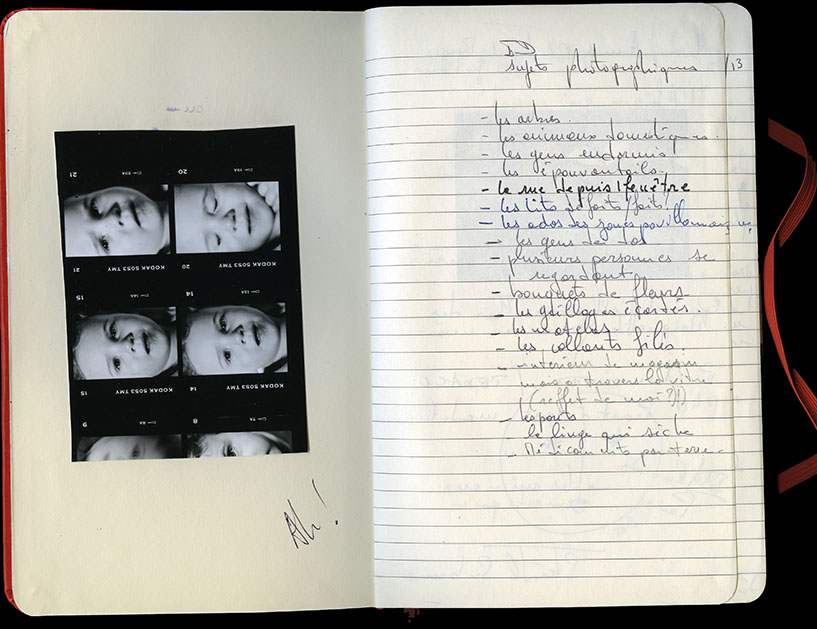 21
20
21
20
KODAK 5053 TMY
KODAK 5053 TMY
15
14
15
14
KODAK 5053 TMY
KODAK 5053 TMY
9
8
Ah !
sujets photographiques /13
- les arbres.
- les animaux domestiques.
- les gens endormis
- les épouvantails.
- la rue depuis 1 fenêtre
- les lits défaits/faits!
- les ados des zones pavillonnaires
- les gens de dos
- plusieurs personnes se
regardant.
- bouquets de fleurs
- les grillages écartés.
- les motels
- les collants filés.
- intérieur de magasin
mais à travers la vitre
(reflet de moi ?!)
- les ponts
- le linge qui sèche
- Médicaments par terre.